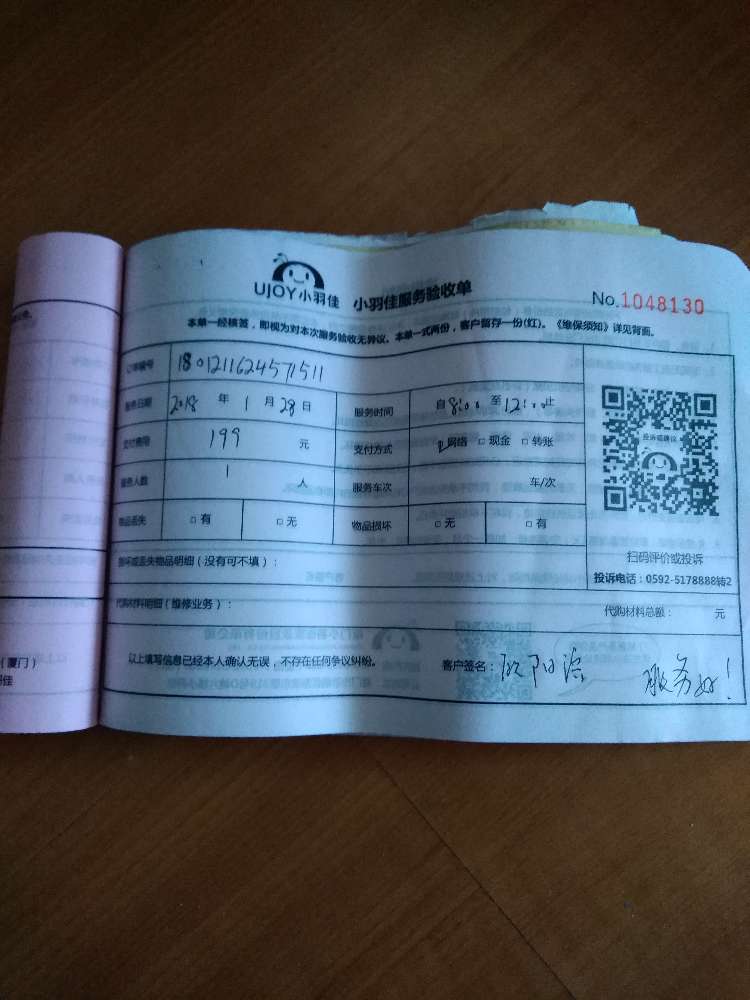 UJOY小羽佳 小羽佳服务验收单
No.1048130
本单一经核签，即视为对本次服务验收无异议。本单一式两份，客户留存一份(红)。《维保须知》详见背面。
订单编号 180121162457 1511
服务日期 2018 年 1 月 28 日 服务时间 自 8:00 至 12:00 止
支付费用 199 元 支付方式 ☑网络 □现金 □转账
服务人数 1 人 服务车次 车/次
物品丢失 □有 □无 物品损坏 □无 □有
投诉或建议
扫码评价或投诉
投诉电话：0592-5178888转2
损坏或丢失物品明细（没有可不填）：
代购材料明细（维修业务）： 代购材料总额： 元
以上填写信息已经本人确认无误，不存在任何争议纠纷。 客户签名： 欧阳 服务好！
（厦门）
羽佳